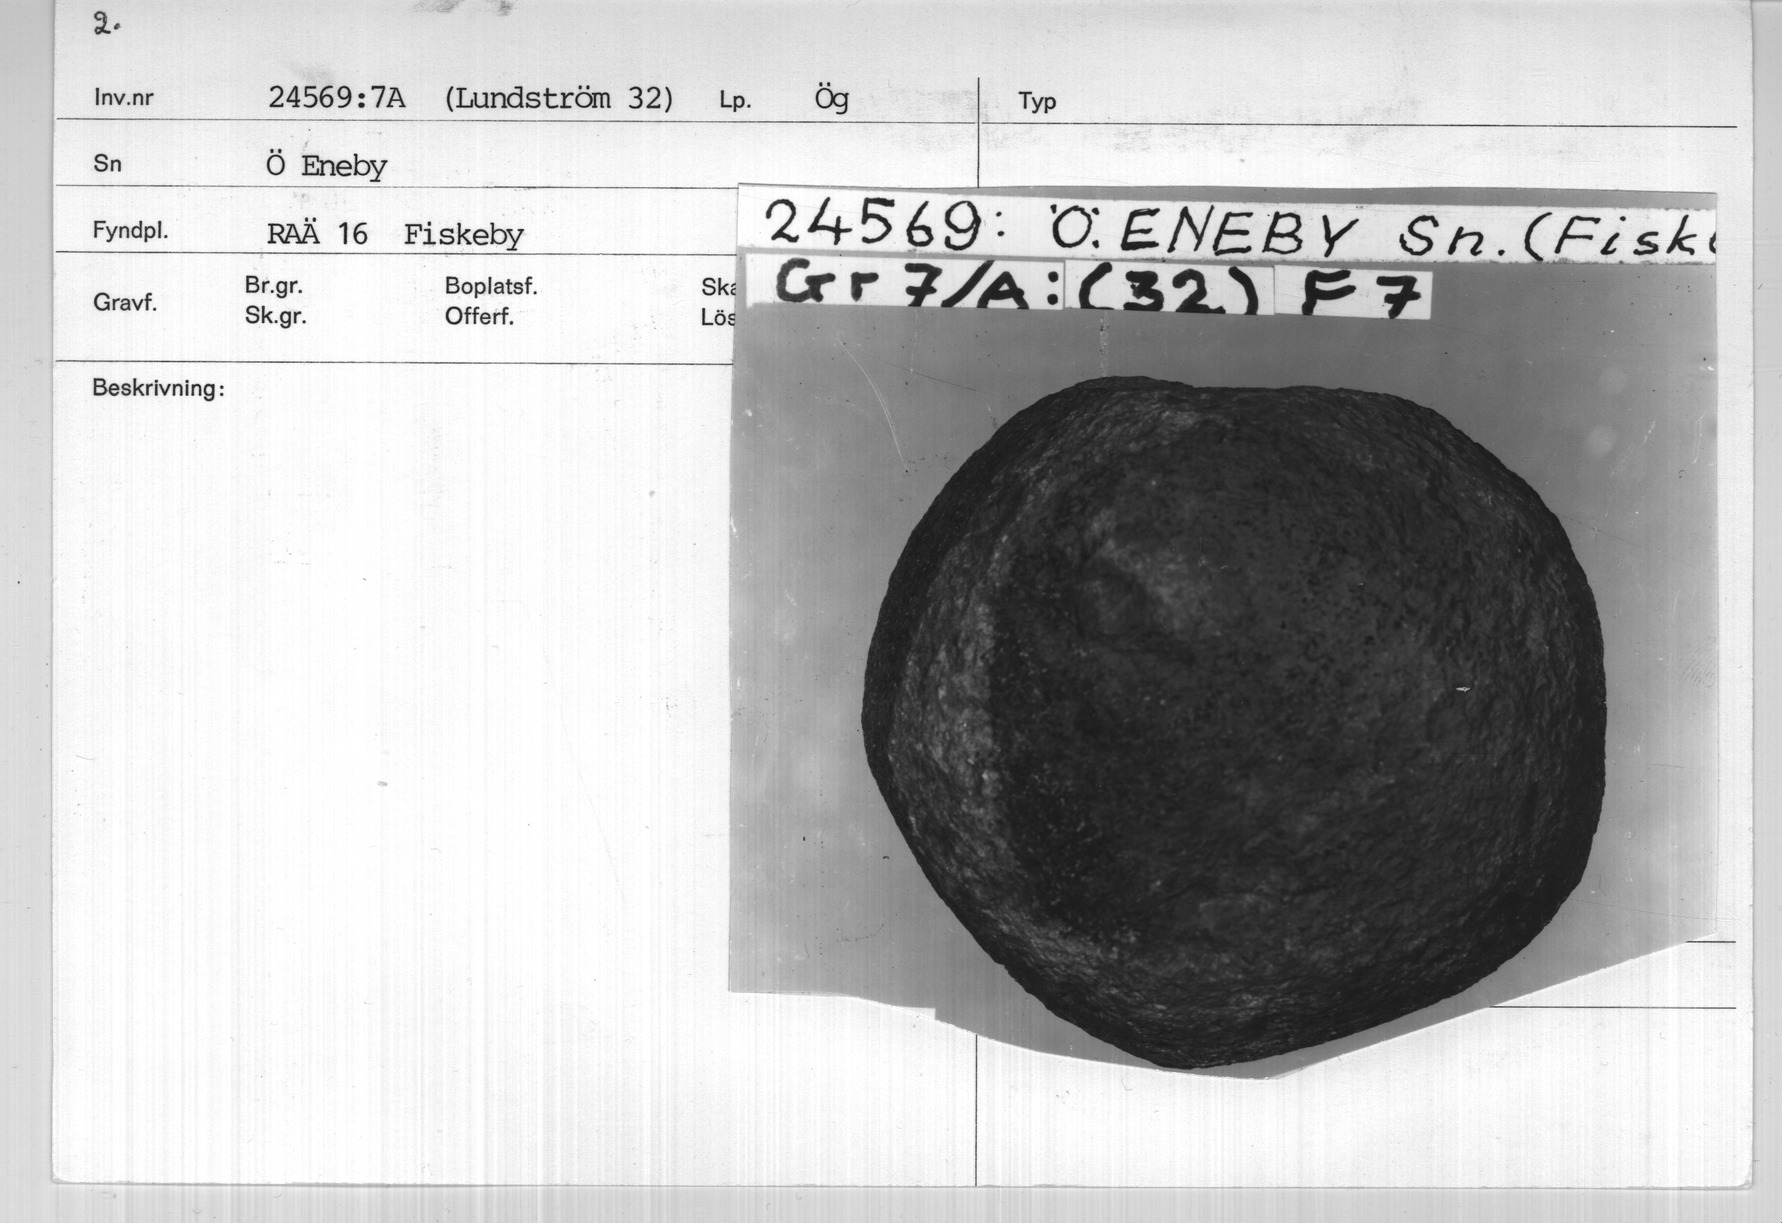 2.
Inv.nr 24569:7A (Lundström 32) Lp. Ög Typ
Sn Ö Eneby
Fyndpl. RAÄ 16 Fiskeby
24569: Ö. ENEBY Sn. (Fisk
Gr 7/A: (32) F7
Gravf. Br.gr. Boplatsf. Ska
Sk.gr. Offerf. Lös
Beskrivning: